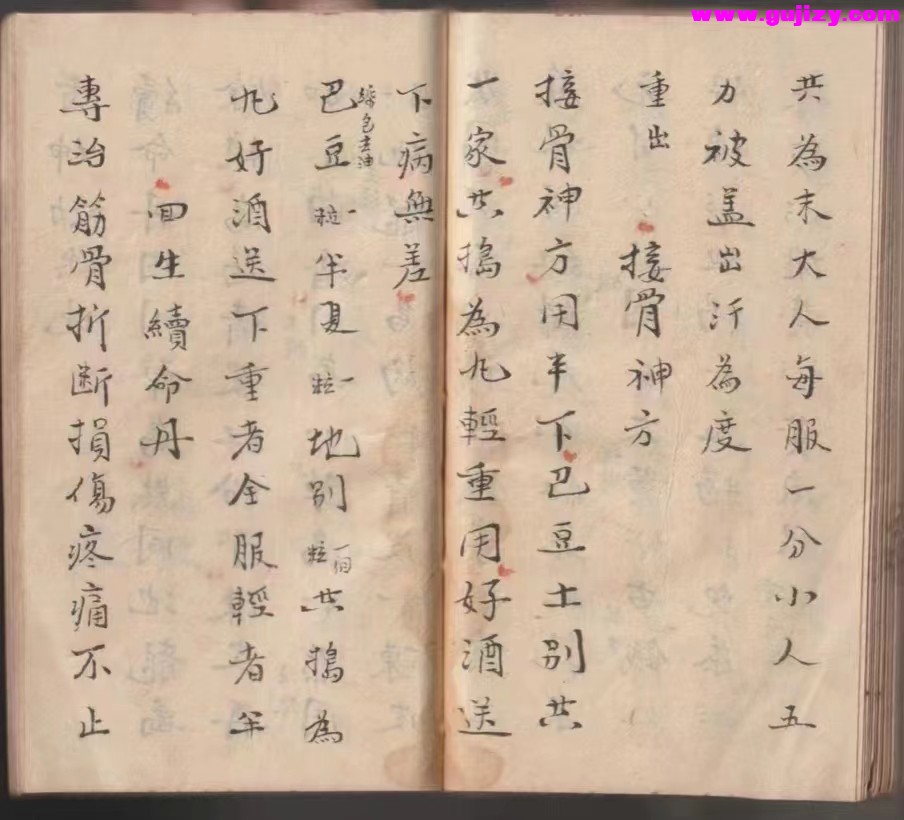 www.gujizy.com
共為末大人每服一分小人五
力被盖出汗為度
重出 接骨神方
接骨神方用半下巴豆土别共
一家共搗為九輕重用好酒送
下病無差
巴豆一粒去油半夏一粒地别一百粒共搗為
九好酒送下重者全服輕者半
回生續命丹
專治筋骨折断損傷疼痛不止